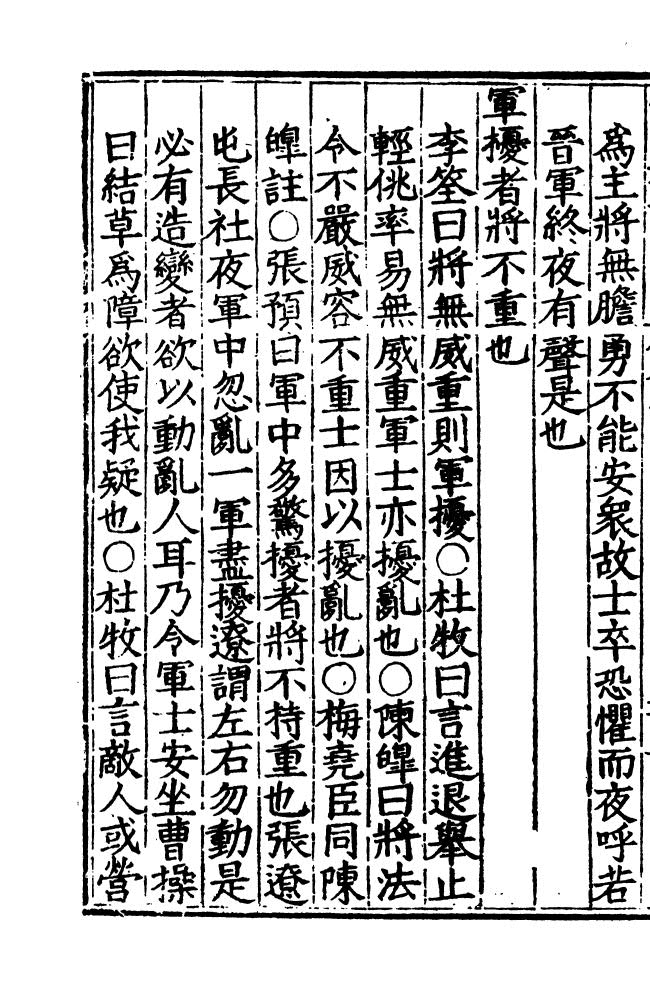 爲主將無膽勇不能安衆故士卒恐懼而夜呼若
晉軍終夜有聲是也
軍擾者將不重也
李筌曰將無威重則軍擾○杜牧曰言進退舉止
輕佻率易無威重軍士亦擾亂也○陳皥曰將法
令不嚴威容不重士因以擾亂也○梅堯臣同陳
皥註○張預曰軍中多驚擾者將不持重也張遼
屯長社夜軍中忽亂一軍盡擾遼謂左右勿動是
必有造變者欲以動亂人耳乃令軍士安坐曹操
曰結草爲障欲使我疑也○杜牧曰言敵人或營